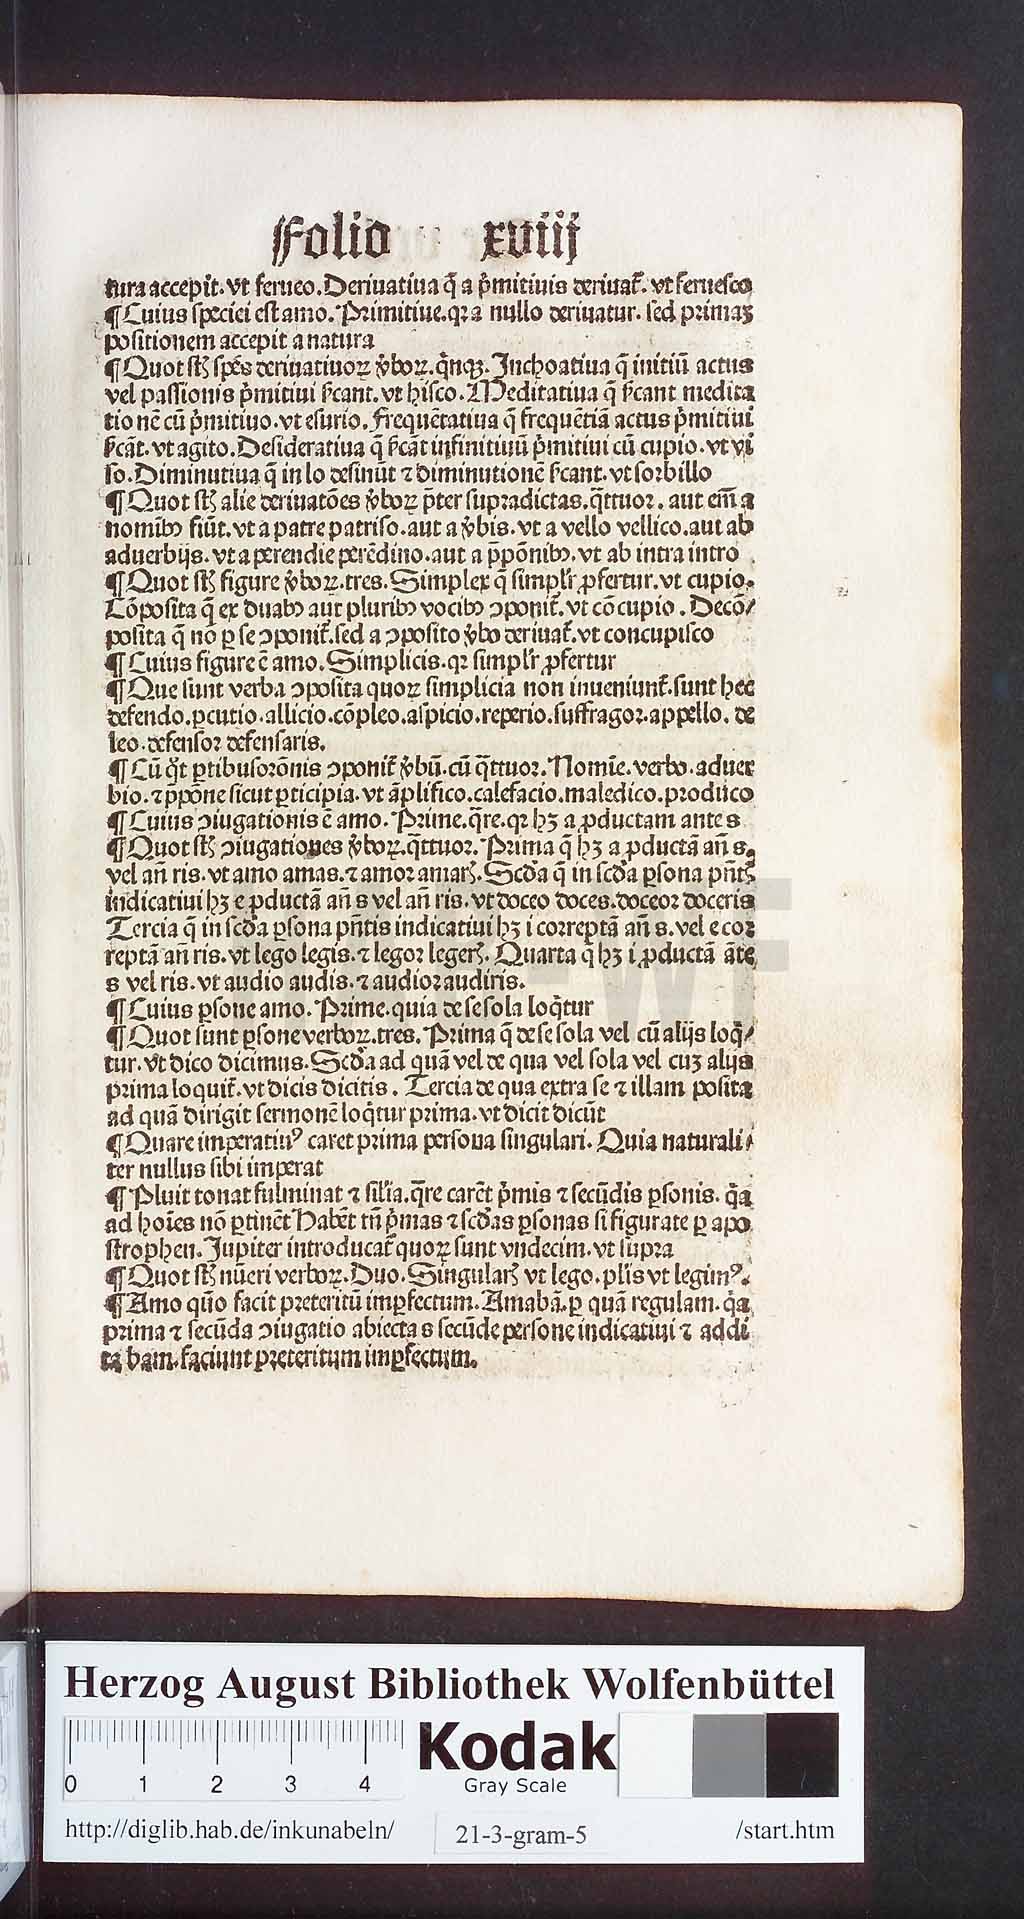 Folio xviij
tura accepit. vt ferueo. Deriuatiua q̄ a p̄mitiuis deriuat᷑. vt feruesco
¶ Cuius speciei est amo. Primitiue. qꝛ a nullo deriuatur. sed primaꝫ
positionem accepit a natura
¶ Quot st̄ spēs deriuatiuoꝝ v̄boꝝ. q̄nqꝫ. Inchoatiua q̄ initiū actus
vel passionis p̄mitiui ſcant. vt hisco. Meditatiua q̄ ſcant medita
tio nē cū p̄mitiuo. vt esurio. Frequētatiua q̄ frequētiā actus p̄mitiui
ſcāt. vt agito. Desideratiua q̄ ſcāt infinitiuū p̄mitiui cū cupio. vt vi
so. Diminutiua q̄ in lo desinūt ⁊ diminutionē ſcant. vt sorbillo
¶ Quot st̄ alie deriuatōes v̄boꝝ p̄ter supradictas. q̄ttuor. aut em̄ a
nomībꝰ fiūt. vt a patre patriso. aut a v̄bis. vt a vello vellico. aut ab
aduerbijs. vt a perendie perēdino. aut a p̄pōnibꝰ. vt ab intra intro
¶ Quot st̄ figure v̄boꝝ. tres. Simplex q̄ simpl'r ꝓfertur. vt cupio.
Cōposita q̄ ex duabꝰ aut pluribꝰ vocibꝰ ↄponit᷑. vt cōcupio. Decō/
posita q̄ nō ꝑ se ↄponit᷑. sed a ↄposito v̄bo deriuat᷑. vt concupisco
¶ Cuius figure ē amo. Simplicis. qꝛ simpl'r ꝓfertur
¶ Que sunt verba ↄposita quoꝝ simplicia non inueniunt᷑. sunt hec
defendo. ꝑcutio. allicio. cōpleo. aspicio. reperio. suffragor. appello. de
leo. defensor defensaris.
¶ Cū quot ꝑtibusorōnis ↄponit᷑ v̄bū. cū q̄ttuor. Nomīe. verbo. aduer
bio. ⁊ p̄pōne sicut ꝑticipia. vt āplifico. calefacio. maledico. produco
¶ Cuius ↄiugationis ē amo. Prime. q̄re. qꝛ hꝫ a ꝓductam ante s
¶ Quot st̄ ↄiugationes v̄boꝝ. q̄ttuor. Prima q̄ hꝫ a ꝓductā an̄ s.
vel an̄ ris. vt amo amas. ⁊ amor amarꝭ. Scd̄a q̄ in scd̄a ꝑsona pn̄tꝭ
indicatiui hꝫ e ꝓductā an̄ s vel an̄ ris. vt doceo doces. doceor doceris
Tercia q̄ in scd̄a ꝑsona pn̄tis indicatiui hꝫ i correptā an̄ s. vel e cor
reptā an̄ ris. vt lego legis. ⁊ legor legerꝭ. Quarta q̄ hꝫ i ꝓductā āte
s vel ris. vt audio audis. ⁊ audior audiris.
¶ Cuius ꝑsone amo. Prime. quia de se sola loq̄tur
¶ Quot sunt ꝑsone verboꝝ. tres. Prima q̄ de se sola vel cū alijs loq̄/
tur. vt dico dicimus. Scd̄a ad quā vel de qua vel sola vel cuꝫ alijs
prima loquit᷑. vt dicis dicitis. Tercia de qua extra se ⁊ illam posita
ad quā dirigit sermonē loq̄tur prima. vt dicit dicūt
¶ Quare imperatiuꝰ caret prima persona singulari. Quia naturali/
ter nullus sibi imperat
¶ Pluit tonat fulminat ⁊ sil'ia. q̄re carēt p̄mis ⁊ secūdis ꝑsonis. q̄a
ad hoīes nō ꝑtinēt Habēt tn̄ p̄mas ⁊ scd̄as ꝑsonas si figurate ꝑ apo
strophen. Jupiter introducat᷑ quoꝝ sunt vndecim. vt supra
¶ Quot st̄ nūeri verboꝝ. Duo. Singularꝭ vt lego. pl'is vt legimꝰ.
¶ Amo quō facit preteritū imꝑfectum. Amabā. ꝑ quā regulam. q̄a
prima ⁊ secūda ↄiugatio abiecta s secūde persone indicatiui ⁊ addi
ta bam. faciunt preteritum imꝑfectum.
HAB-WF
Herzog August Bibliothek Wolfenbüttel
0 1 2 3 4
Kodak
Gray Scale
http://diglib.hab.de/inkunabeln/ 21-3-gram-5 /start.htm